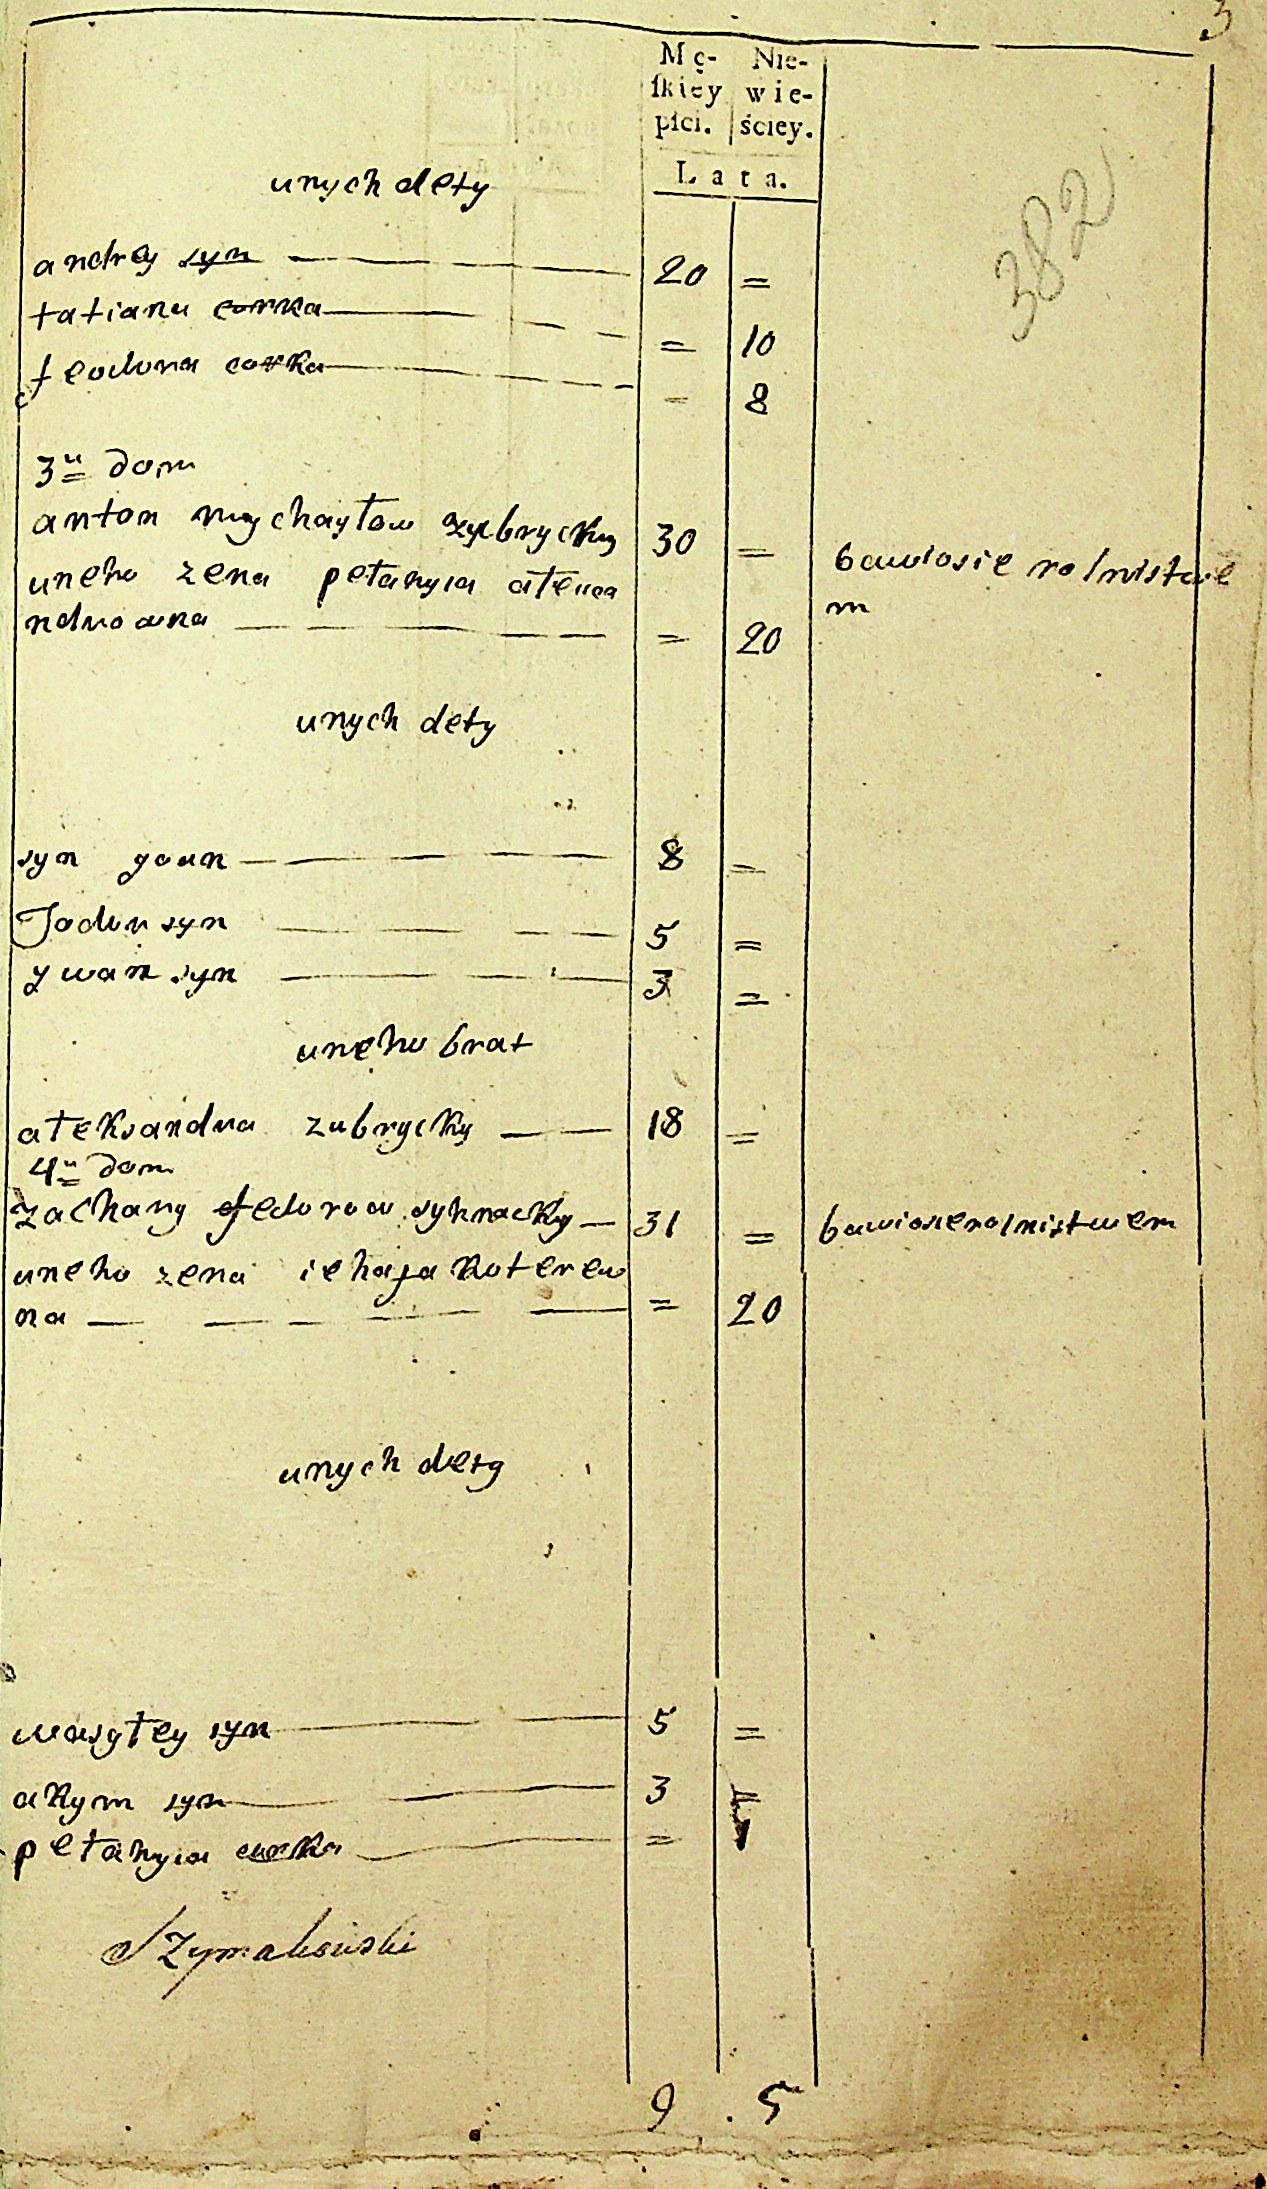 3
Mę- Nie-
ſkiey wie-
płci. ściey.
Lata.
382
unych dety
andrey syn 20 =
tatiana corka = 10
feodora corka = 8
3u dom
anton mychayłow zubrycky 30 = bawiosie rolnistwe
m
uneho zena pełahyia ałexa
ndrowna = 20
unych dety
syn youn 8 =
Todur syn 5 =
ywan syn 3 =
uneho brat
ałeksandra zubrycky 18 =
4u dom
zachary fedorow syhnacky 31 = bawiosierolnistwem
uneho zena
na = 20
unych dety
wasyłey syn 5 =
akym syn 3 =
pełahyia curka = 1
Szymaksiński
9 . 5